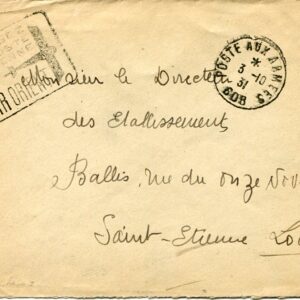 POSTE AUX ARMEES
*
3 -10
31
608
AIR ORIENT
Monsieur le Directeur
des Etallissement
Ballis, rue du onze Nov
Saint-Etienne Lo